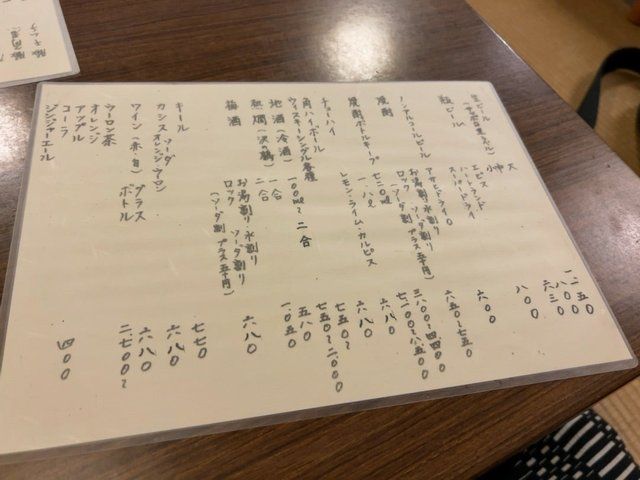 生ビール
大
中
小
一、二五〇
八〇〇
六三〇
瓶ビール
エビス
ハートランド
スーパードライ
八〇〇
ノンアルコールビール
アサヒドライ〇
六〇〇
焼酎
お湯割り・水割り
ロック
ソーダ割り
六五〇〜七五〇
焼酎ボトルキープ
七二〇ml
一、八l
三六〇〇〜四四〇〇
七二〇〇〜八五〇〇
チューハイ
レモン・ライム・カルピス
六八〇
角ハイボール
六八〇
ウィスキーシングル各種
七五〇〜
地酒(冷酒)
一〇〇ml〜二合
七五〇〜二、〇〇〇
熱燗
一合
二合
五八〇
一、〇五〇
梅酒
お湯割り・水割り
ロック
ソーダ割り
(ソーダ割プラス五十円)
六八〇
キール
七七〇
カシス
ソーダ
オレンジ・ウーロン
六八〇
ワイン(赤・白)
グラス
ボトル
六八〇
二、七〇〇〜
ウーロン茶
オレンジ
アップル
コーラ
ジンジャーエール
四〇〇